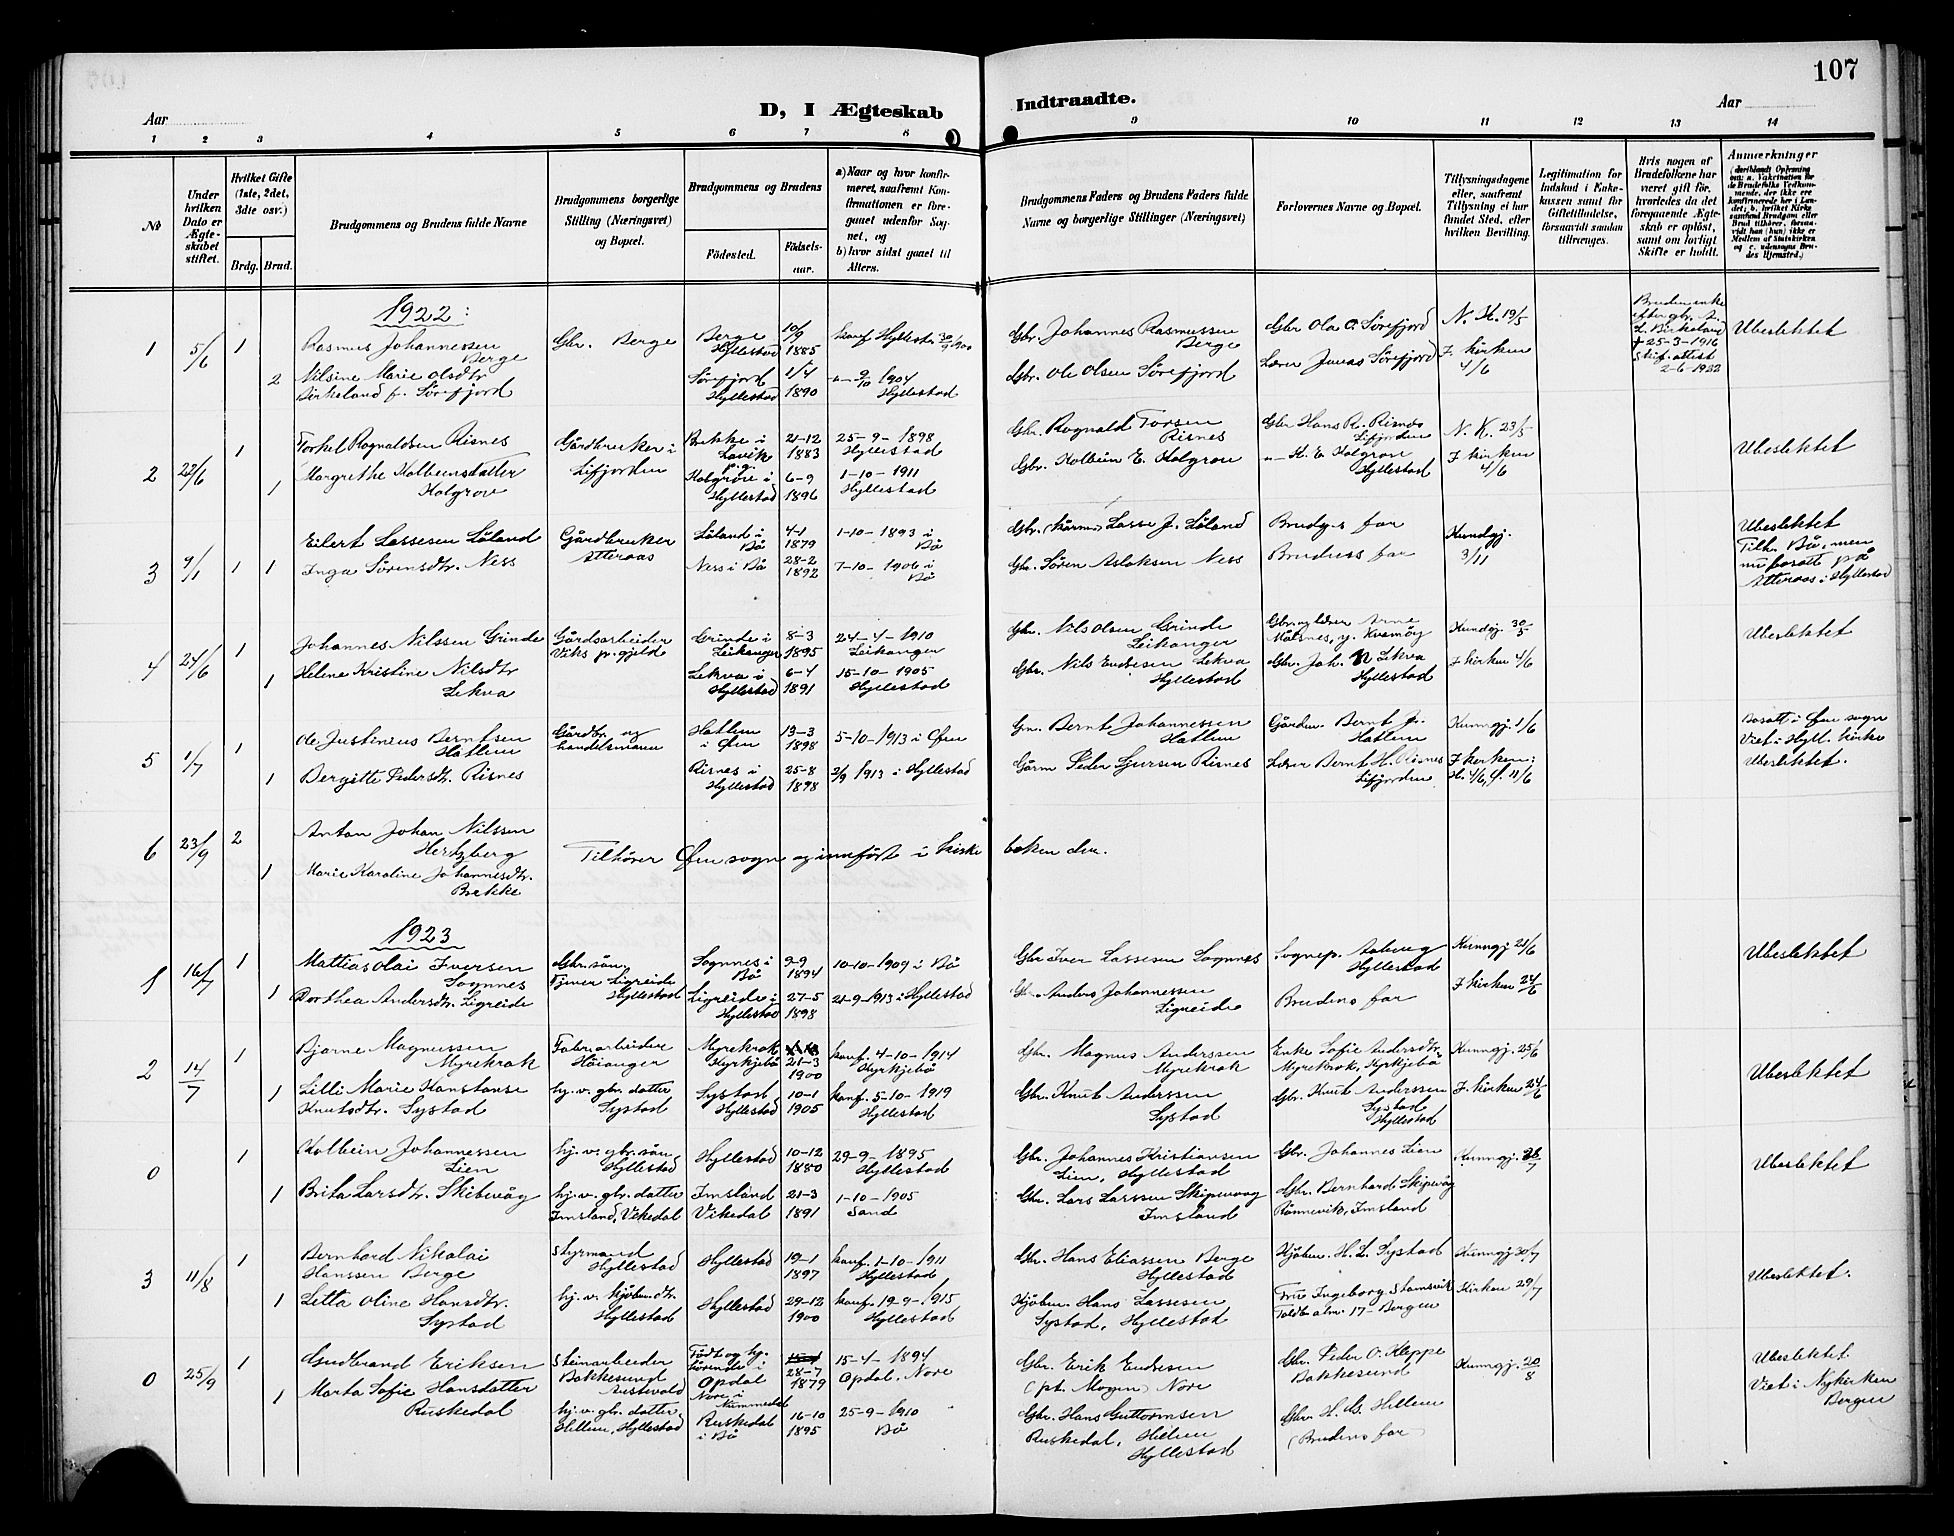 107
D, I Ægteskab
Indtraadte.
Aar
Aar
1 2 3 4 5 6 7 8 9 10 11 12 13 14
No
Under hvilken Dato er Ægteskabet stiftet.
Hvilket Gifte (1ste, 2det, 3dte osv.)
Brdg. Brud.
Brudgommens og Brudens fulde Navne
Brudgommens borgerlige Stilling (Næringsvei) og Bopæl.
Brudgommens og Brudens
Fødested.
Fødselsaar.
a) Naar og hvor konfirmeret, saafremt Konfirmationen er foregaaet udenfor Sognet, og
b) hvor sidst gaaet til Alters.
Brudgommens Faders og Brudens Faders fulde Navne og borgerlige Stillinger (Næringsvei)
Forlovernes Navne og Bopæl.
Tillysningsdagene eller, saafremt Tillysning ei har fundet Sted, efter hvilken Bevilling.
Legitimation for Indskud i Enkekassen samt for Giftetilladelse, forsaavidt saadan tiltrænges.
Hvis nogen af Brudefolkene har været gift før, hvorledes da det foregaaende Ægteskab er opløst, samt om lovligt Skifte er holdt.
Anmærkninger
(deriblandt Oplysning om: a. Vakcination for de Brudefolks Vedkommende, der ikke ere konfirmerede her i Landet; b. hvilket Kirkesamfund Brudgom eller Brud tilhører, forsaavidt han (hun) ikke er Medlem af Statskirken og c. udensogns Brudes Hjemsted.)
1922:
1 5/6 1 Rasmus Johannessen Berge Gbr. Berge Berge Hyllestad 10/9 1885 konf Hyllestad 30/9 1900 Gbr. Johannes Rasmussen Berge Gbr Ola O. Sørefjord N. H. 19/5 Bruden enke efter gbr. Birkeland + 25-3-1916 Skif. attest 2-6-1922 Ubeslektet
2 Nilsine Marie Olsdtr Birkeland f. Sørefjord Sørefjord Hyllestad 1/4 1890 -"- 9/10 1904 Hyllestad Gbr. Ole Olsen Sørefjord Lærer Jonas Sørefjord I kirken 4/6
2 22/6 1 Torkel Rognaldsen Risnes Gårdbruker i Lifjorden Brekke i Lavik p.g. 21-12 1883 25-9-1898 Hyllestad Gbr. Rognald Torsen Risnes Gbr Hans R. Risnes Lifjorden N. K. 23/5 Ubeslektet
1 Margrethe Kolbeinsdatter Holgrov Holgrov i Hyllestad 6-9 1896 1-10-1911 Hyllestad Gbr. Kolbein E. Holgrov -"- H. E Holgrov Hyllestad I kirken 4/6
3 9/1 1 1 Eilert Lassesen Løland Gårdbruker Atteraas Løland i Bø 4-1 1879 1-10-1893 i Bø Gbr. Lasse J. Løland Brudgs far Kundgj. 3/11 Ubeslektet Tilh. Bø, men nu bosatt på Atteraas i Hyllestad
Inga Sørensdtr. Ness Ness i Bø 28-2 1892 7-10-1906 i Bø Gbr. Søren Aslaksen Ness Brudens far
4 24/6 1 Johannes Nilssen Grinde Gårdsarbeider Viks p. gjeld Grinde i Leikanger 8-3 1895 24-4-1910 Leikanger Gbr. Nils Olsen Grinde Leikanger Gbr. og lærer Arne Målsnes, Kundgj. 30/5 Ubeslektet
1 Helene Kristine Nilsdtr Lekva Lekva i Hyllestad 6-4 1891 15-10-1905 Hyllestad Gbr. Nils Endresen Lekva Hyllestad Gbr. Joh. N Lekva Hyllestad I kirken 4/6
5 1/7 1 Ole Justinius Berntsen Hatlem Gårdbr. og handelsmann Hatlem i Øen 13-3 1898 5-10-1913 i Øen Gm. Bernt Johannessen Hatlem Gården. Bernt Jr. Hatlem Kunngj. 1/6 Bosatt i Øens sogn Viet i Hyll. kirke
1 Bergitte Pedersdtr. Risnes Risnes i Hyllestad 25-8 1898 2/9 1913 i Hyllestad Gårm Peder Risnes Lærer Bernt H. Risnes Lifjorden I kirken: H. 4/6, Ø. 11/6 Ubeslektet.
6 23/9 2 Anton Johan Nilssen Hertzberg Tilhører Øens sogn og innført i kirkeboken der.
1 Marie Karoline Johannesdtr. Brekke
1923
1 16/7 1 Mattias Olai Iversen Sognnes Gbr. søn. Tjener Ligreide Hyllestad Sognnes i Bø 9-9 1894 10-10-1909 i Bø Gbr Iver Lassesen Sognnes Sognep. Aaberg Hyllestad Kunngj 21/6 Ubeslektet
1 Dorthea Andersdtr. Ligreide Ligreide i Hyllestad 27-5 1898 21-9-1913 i Hyllestad Gbr. Anders Johannessen Ligreide Brudens far I kirken 24/6
2 14/7 1 Bjarne Magnussen Myrekrok Fabr.arbeider Høianger Myrekrok Kyrkjebø 21-3 1900 konf. 4-10-1914 Kyrkjebø Gbr. Magnus Anderssen Myrekrok Enke Sofie Andersdtr. Myrekrok, Kyrkjebø Kunngj. 25/6 Ubeslektet
1 Lilli Marie Konstanse Knutsdtr. Systad hj. v. gbr. datter Systad Systad Hyllestad 10-1 1905 konf. 5-10-1919 Hyllestad Gbr. Knut Anderssen Systad Gbr. Knut Anderssen Systad Hyllestad I kirken 24/6
0 1 Kolbein Johannessen Lien hj. v. gbr. søn Hyllestad Hyllestad 10-12 1880 29-9-1895 Hyllestad Gbr. Johannes Kristiansen Lien, Hyllestad Gbr. Johannes Lien Kunngj. Ubeslektet
1 Brita Larsdtr. Skibevåg hj. v. gbr. datter Imsland, Vikedal Imsland Vikedal 21-3 1891 1-10-1905 Sand Gbr. Lars Larssen Skipevåg Imsland Gbr. Bernhard Skipevåg Rønnevik, Imsland
3 11/8 1 Bernhard Nikolai Hanssen Berge Styrmand Hyllestad Hyllestad 19-1 1897 konf. 1-10-1911 Hyllestad Gbr. Hans Eliassen Berge Hyllestad Kjøbm. H. L. Systad Kunngj 20/7 Ubeslektet.
1 Litta Oline Hansdtr. Systad hj. v. kjøbm. dtr. Hyllestad Hyllestad 29-12 1900 konf. 19-9-1915 Hyllestad Kjøbm. Hans Lassesen Systad, Hyllestad Frø Ingeborg Stamsvik Toldb. alm. 17 - Bergen Kirken 29/7
0 25/9 1 Gudbrand Eriksen Steinarbeider Bakkesund Austevold Født og hj. i Opdal Nore i Nummedal 28-7 1879 15-4-1894 Opdal, Nore Gbr. Erik Endresen (pt. Mogen) Nore Gbr. Peder O. Kleppe Bakkesund Kunngj. 20/8 Ubeslektet. Viet i Nykirken Bergen
1 Marta Sofie Hansdatter Ruskedal hj. v. gbr. datter Hellem, Hyllestad Ruskedal i Bø 16-10 1895 25-9-1910 Bø Gbr. Hans Guttormsen Ruskedal, Hellem Hyllestad Gbr. H. G. Hellem (Brudens far)